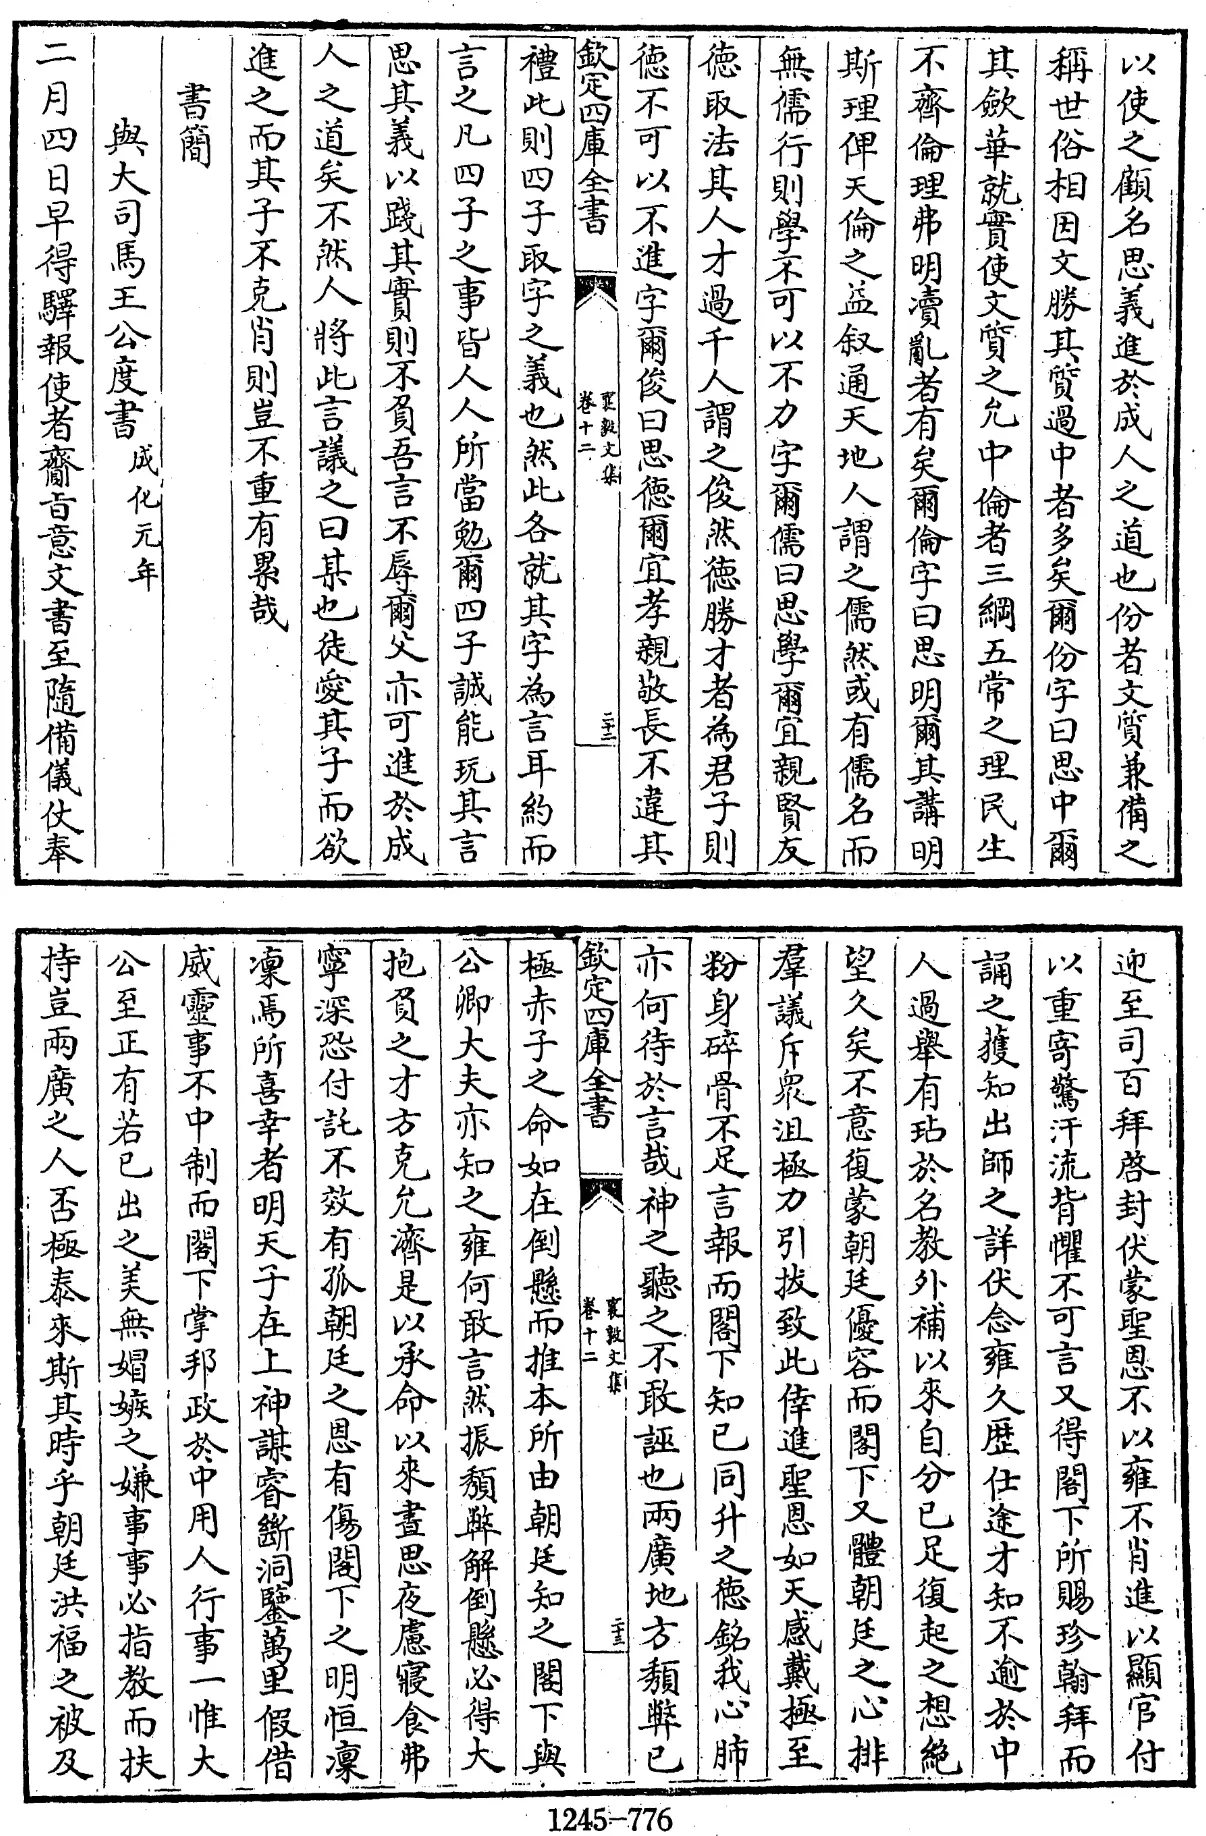 以使之顧名思義進於成人之道也份者文質兼備之
稱世俗相因文勝其質過中者多矣爾份字曰思中爾
其歛華就實使文質之允中倫者三綱五常之理民生
不齊倫理弗明瀆亂者有矣爾倫字曰思明爾其講明
斯理俾天倫之益叙通天地人謂之儒然或有儒名而
無儒行則學不可以不力字爾儒曰思學爾宜親賢友
德取法其人才過千人謂之俊然德勝才者為君子則
德不可以不進字爾俊曰思德爾宜孝親敬長不違其
欽定四庫全書
襄毅文集
卷十二
二十二
禮此則四子取字之義也然此各就其字為言耳約而
言之凡四子之事皆人人所當勉爾四子誠能玩其言
思其義以踐其實則不負吾言不辱爾父亦可進於成
人之道矣不然人將此言議之曰某也徒愛其子而欲
進之而其子不克肖則豈不重有累哉
書簡
與大司馬王公度書成化元年
二月四日早得驛報使者齎㫖意文書至隨備儀仗奉
迎至司百拜啓封伏蒙聖恩不以雍不肖進以顯官付
以重寄驚汗流背懼不可言又得閣下所賜珍翰拜而
誦之獲知出師之詳伏念雍久歴仕途才知不逾於中
人過舉有玷於名教外補以來自分已足復起之想絶
望久矣不意復蒙朝廷優容而閣下又體朝廷之心排
羣議斥衆沮極力引拔致此倖進聖恩如天感戴極至
粉身碎骨不足言報而閣下知已同升之德銘我心肺
亦何待於言哉神之聽之不敢誣也兩廣地方頽弊已
欽定四庫全書
襄毅文集
卷十二
二十三
極赤子之命如在倒懸而推本所由朝廷知之閣下與
公卿大夫亦知之雍何敢言然振頽弊解倒懸必得大
抱負之才方克允濟是以承命以來晝思夜慮寢食弗
寧深恐付託不效有孤朝廷之恩有傷閣下之明恒凜
凜焉所喜幸者明天子在上神謀睿斷洞鑒萬里假借
威靈事不中制而閣下掌邦政於中用人行事一惟大
公至正有若已出之美無媢嫉之嫌事事必指教而扶
持豈兩廣之人否極泰來斯其時乎朝廷洪福之被及
1245-776